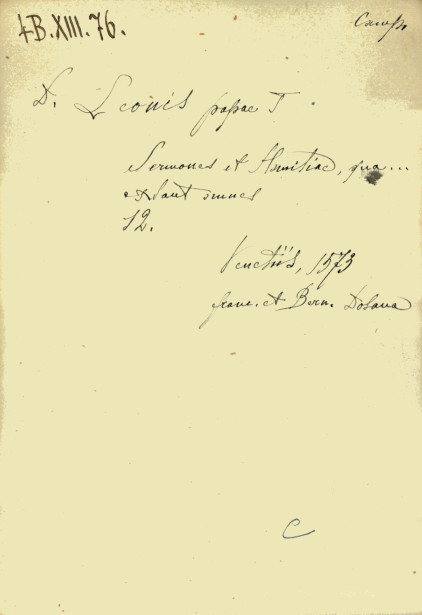 4B.XIII.76.
D. Leonis papae I
Sermones et Homiliae, quae...
extant omnes
12.
Venetiis, 1573
franc. et Bern.
C